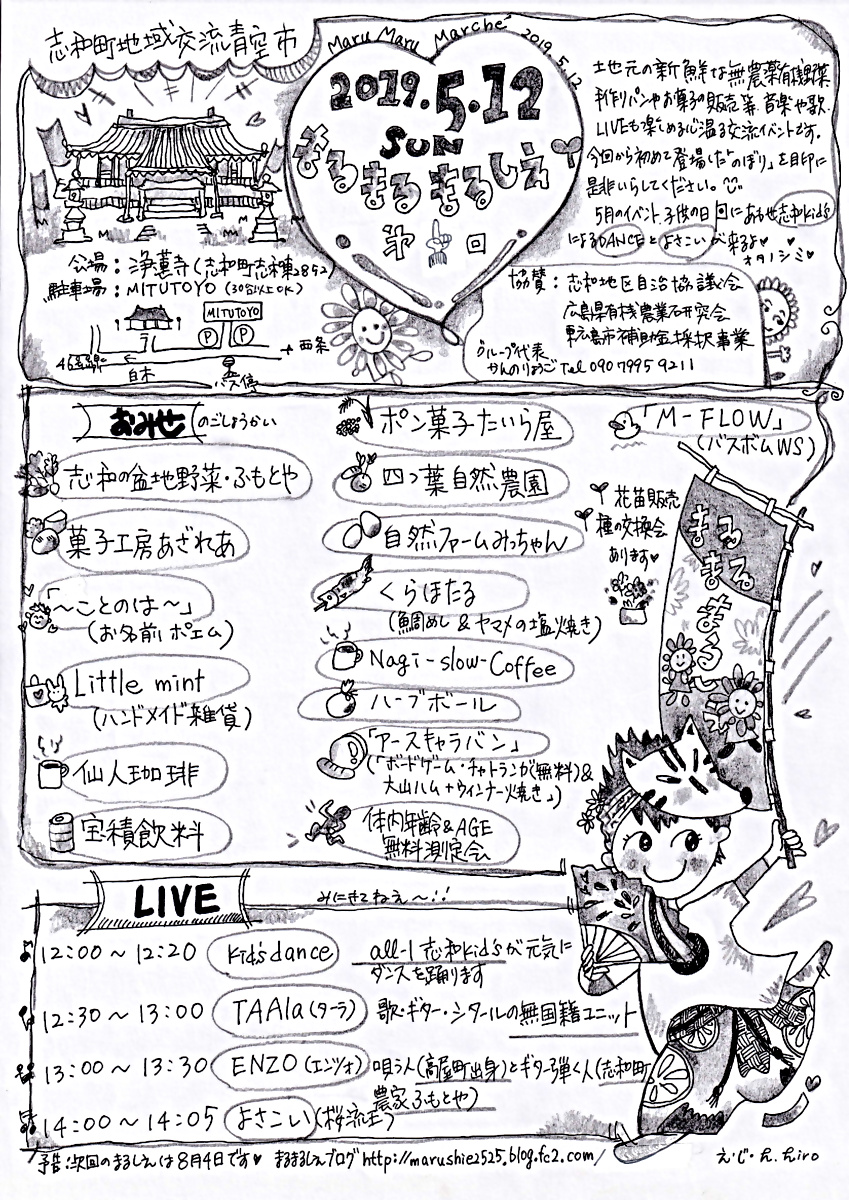 志和町地域交流青空市
Maru Maru Marché 2019.5.12
2019.5.12
SUN
まるまるまるしぇ
第 回
土地元の新鮮な無農薬有機野菜
手作りパンやお菓子の販売等、音楽や歌、
LIVEも楽しめる心温る交流イベントです。
今回から初めて登場した"のぼり"を目印に
是非いらしてください。
5月のイベント、子供の日 回にあわせ志和kids
によるDANCEとよさこいが来るよ♥
オタノシミ♥
会場：浄蓮寺（志和町志和東2852）
駐車場：MITUTOYO（30台以上OK）
MITUTOYO
P P
46号線
白木
バス停
西条
協賛：志和地区自治協議会
広島県有機農業研究会
東広島市補助金採択事業
グループ代表
かんのりょうご Tel 090 7995 9211
おみせのごしょうかい
志和の盆地野菜・ふもとや
菓子工房あざれあ
「～ことのは～」
（お名前ポエム）
Little mint
（ハンドメイド雑貨）
仙人珈琲
宝積飲料
ポン菓子たいら屋
四つ葉自然農園
自然ファームみっちゃん
くらほたる
（鯛めし＆ヤマメの塩焼き）
Nagi-slow-Coffee
ハーブボール
「アースキャラバン」
（「ボードゲーム・チャトランガ（無料）&
大山ハム+ウィンナー焼き」）
体内年齢&AGE
無料測定会
「M-FLOW」
（バスボムWS）
花苗販売
種の交換会
あります♥
まるまるまるしぇ
LIVE
みにきてねぇ～!!
12:00～12:20 Kid's dance all-1 志和kid'sが元気に
ダンスを踊ります
12:30～13:00 TAAla（ターラ） 歌・ギター・シタールの無国籍ユニット
13:00～13:30 ENZO（エンツォ） 唄う人（高屋町出身）とギター弾く人（志和町
農家ふもとや）
14:00～14:05 よさこい（桜流士）
予告:次回のまるしぇは8月4日です♥ まるまるしぇブログ http://marushie2525.blog.fc2.com/
え・じ・ん.んiro